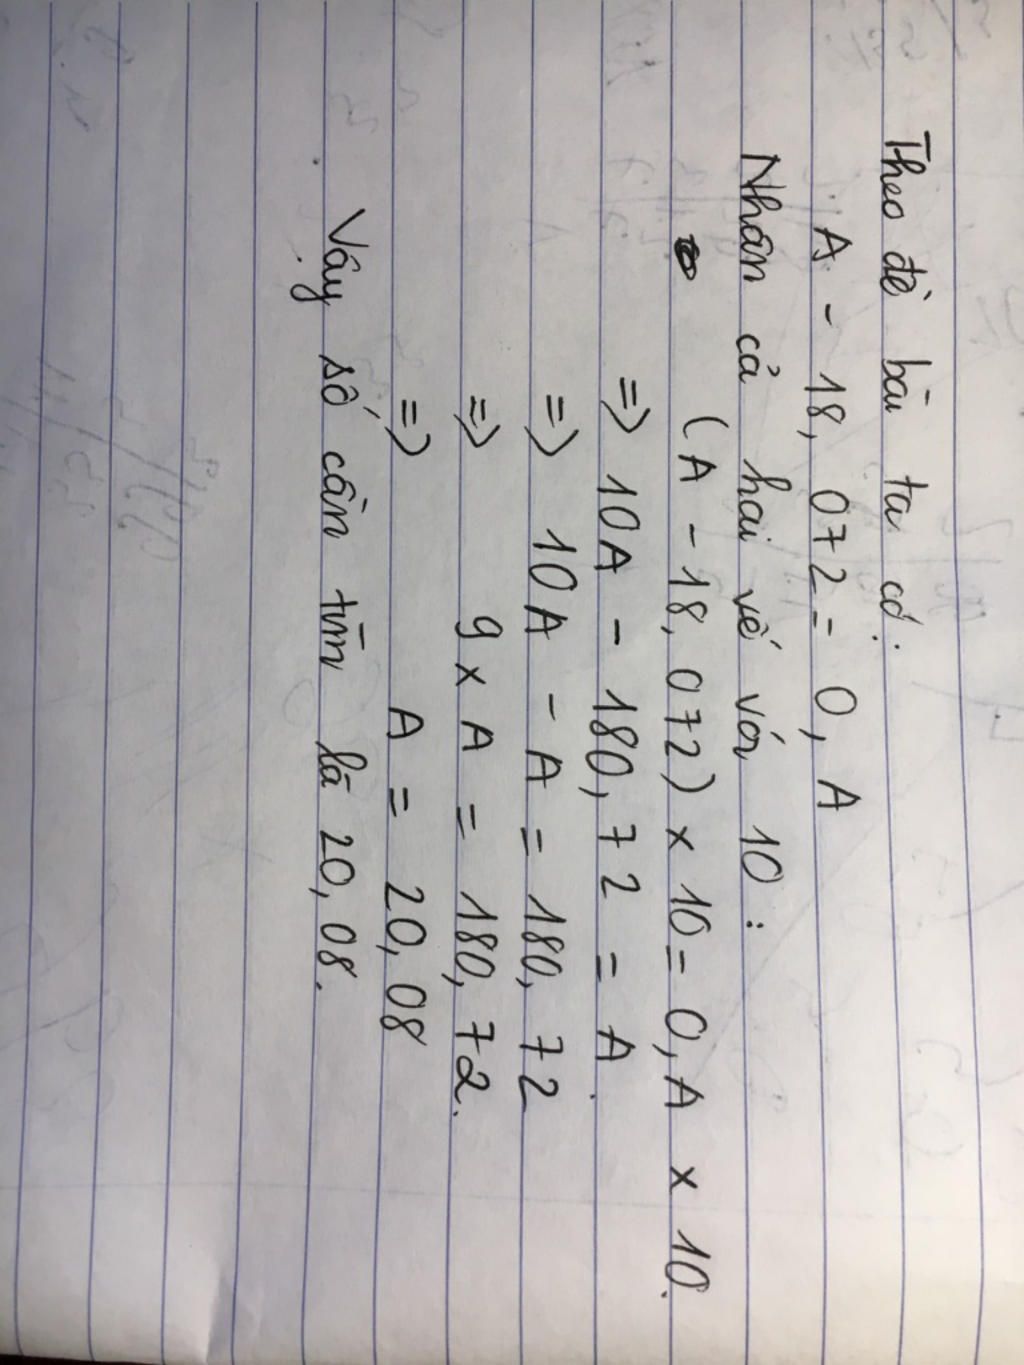 Theo đề bài ta có:
A - 18,072 = 0,A
Nhân cả hai vế với 10:
(A - 18,072) x 10 = 0,A x 10.
=> 10A - 180,72 = A.
=> 10A - A = 180,72
=> 9 x A = 180,72.
=> A = 20,08
Vậy số cần tìm là 20,08.